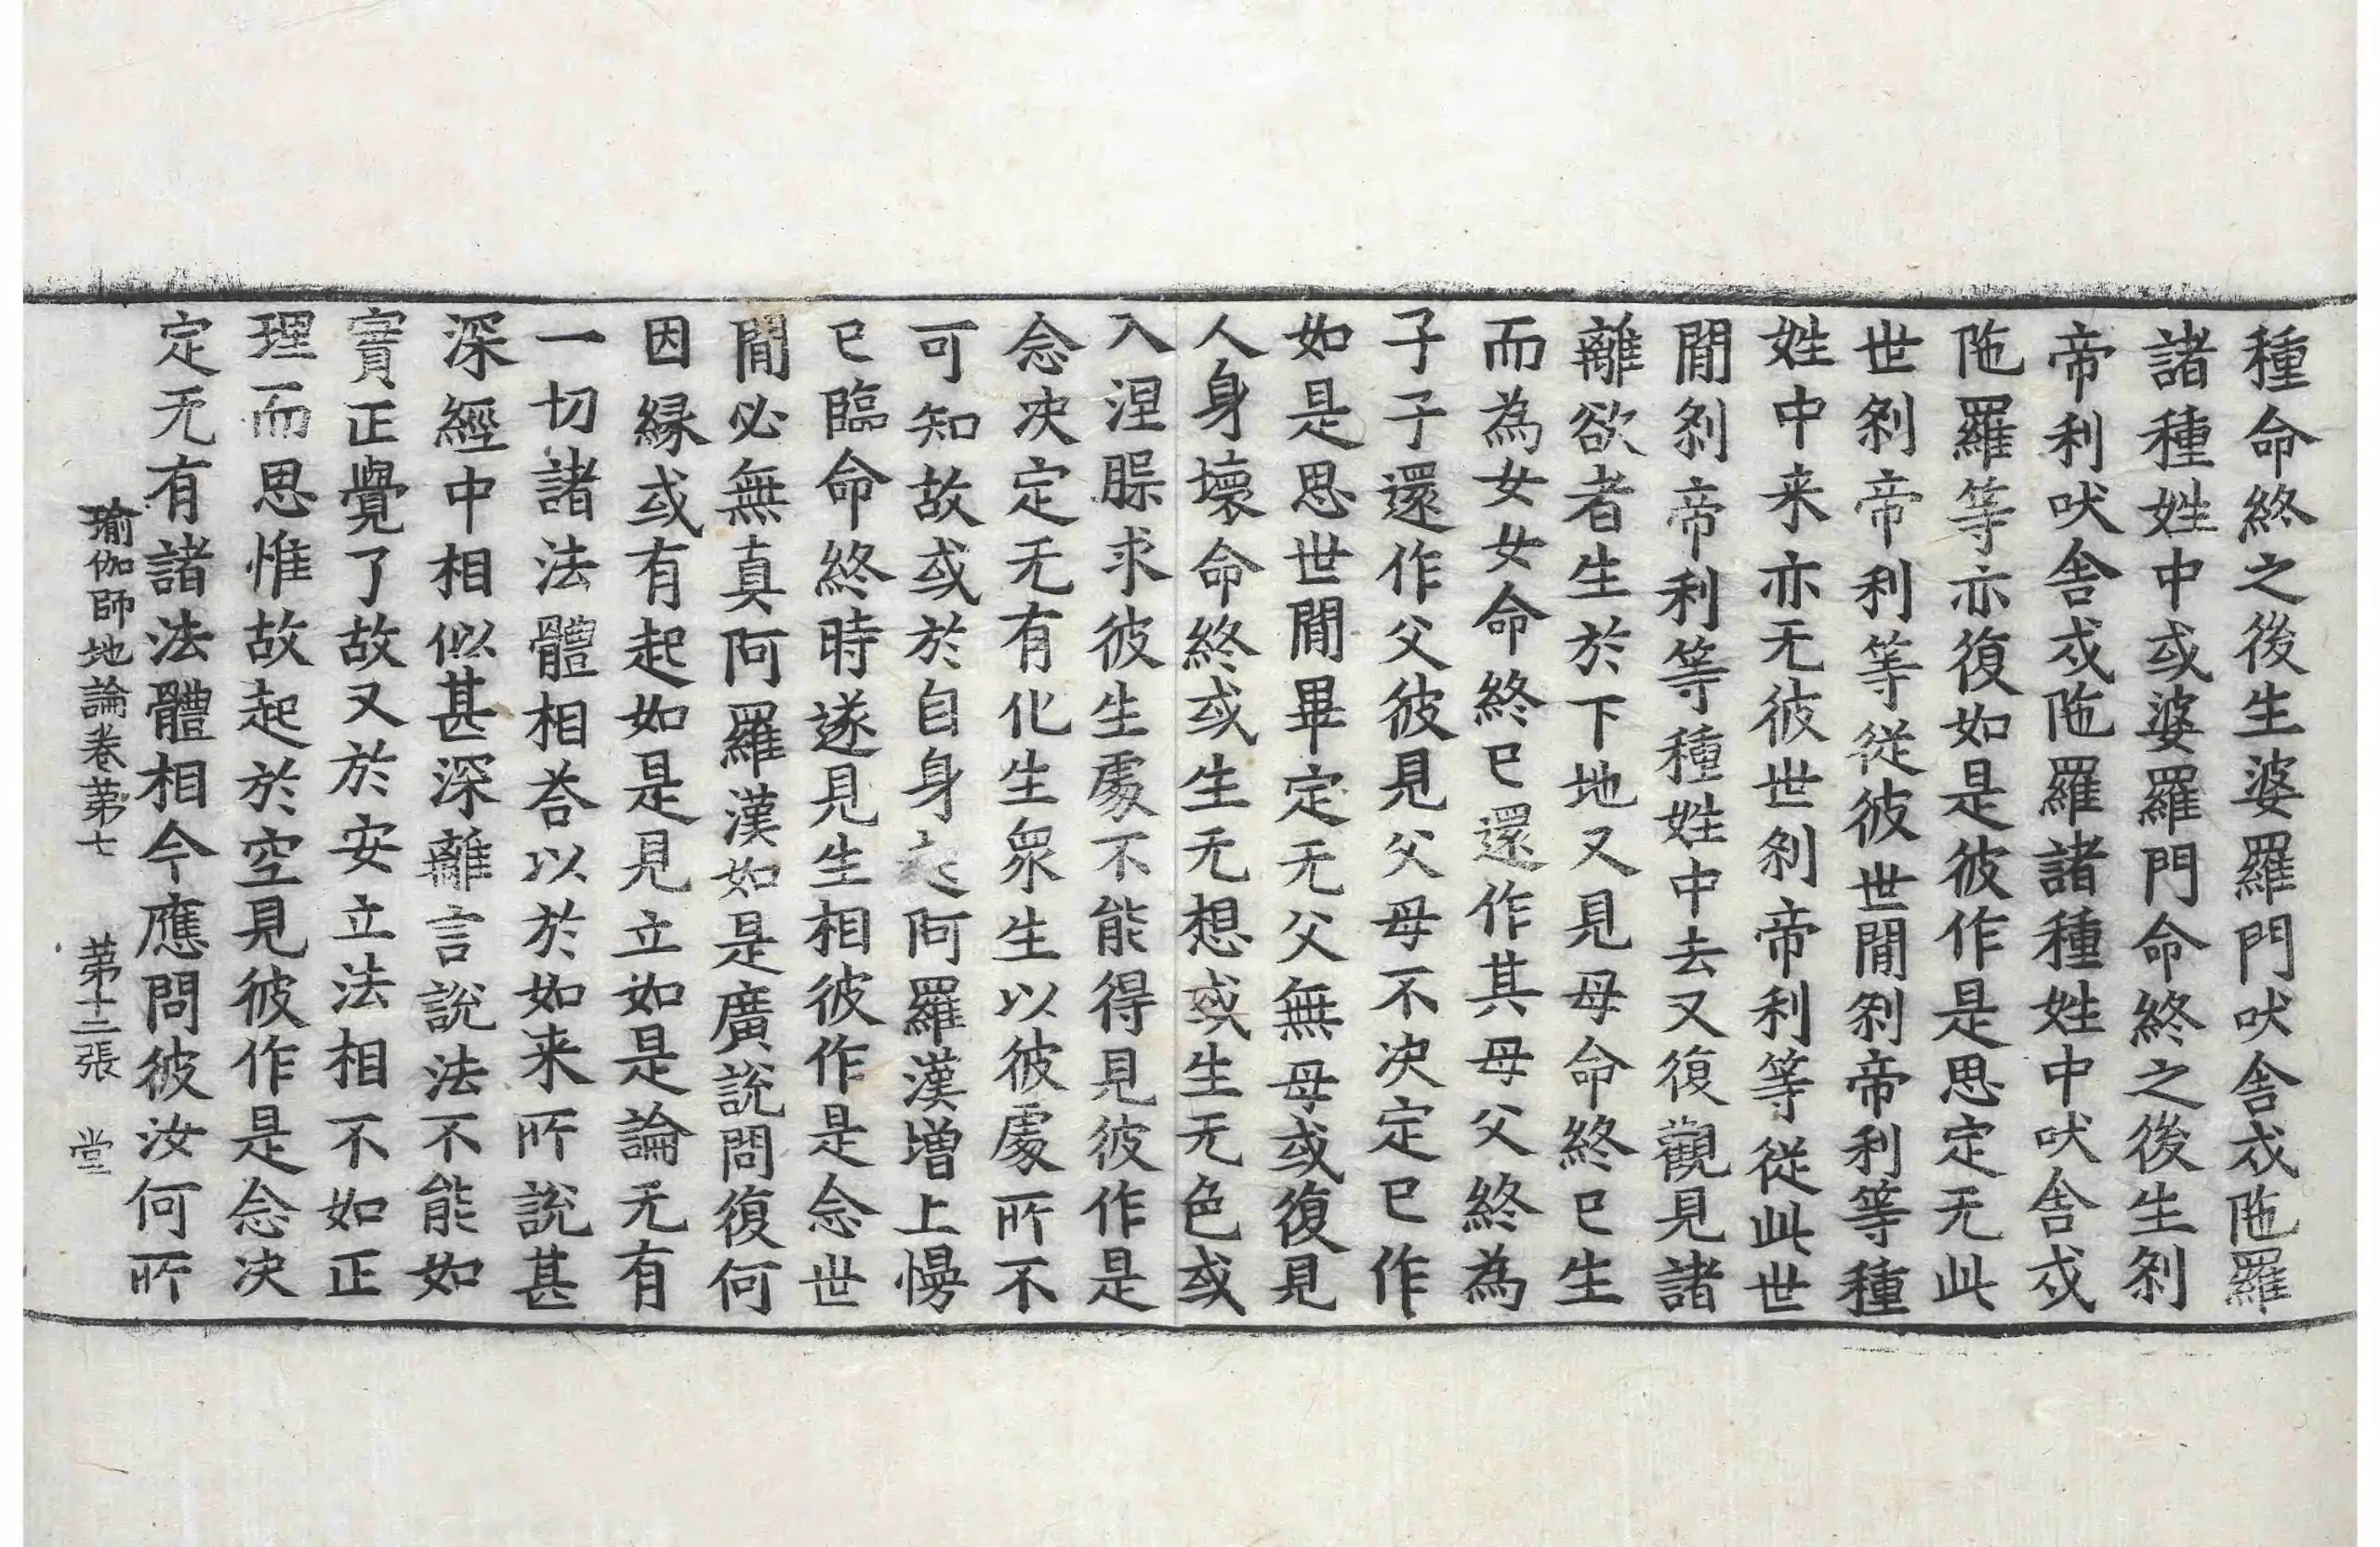 種命終之後生婆羅門吠舎或陁羅
諸種姓中或婆羅門命終之後生刹
帝利吠舎或陁羅諸種姓中吠舎或
陁羅等亦復如是彼作是思定无此
世刹帝利等從彼世閒刹帝利等種
姓中来亦无彼世刹帝利等從此世
閒刹帝利等種姓中去又復觀見諸
離欲者生於下地又見母命終已生
而為女女命終已還作其母父終為
子子還作父彼見父母不决定已作
如是思世閒畢定无父無母或復見
人身壞命終或生无想或生无色或
入涅槃求彼生處不能得見彼作是
念决定无有化生衆生以彼處所不
可知故或於自身起阿羅漢增上慢
已臨命終時遂見生相彼作是念世
閒必無真阿羅漢如是廣說問復何
因縁或有起如是見立如是論无有
一切諸法體相荅以於如来所說甚
深經中相似甚深離言說法不能如
實正覺了故又於安立法相不如正
理而思惟故起於空見彼作是念决
定无有諸法體相今應問彼汝何所
瑜伽師地論卷第七 第十二張 堂